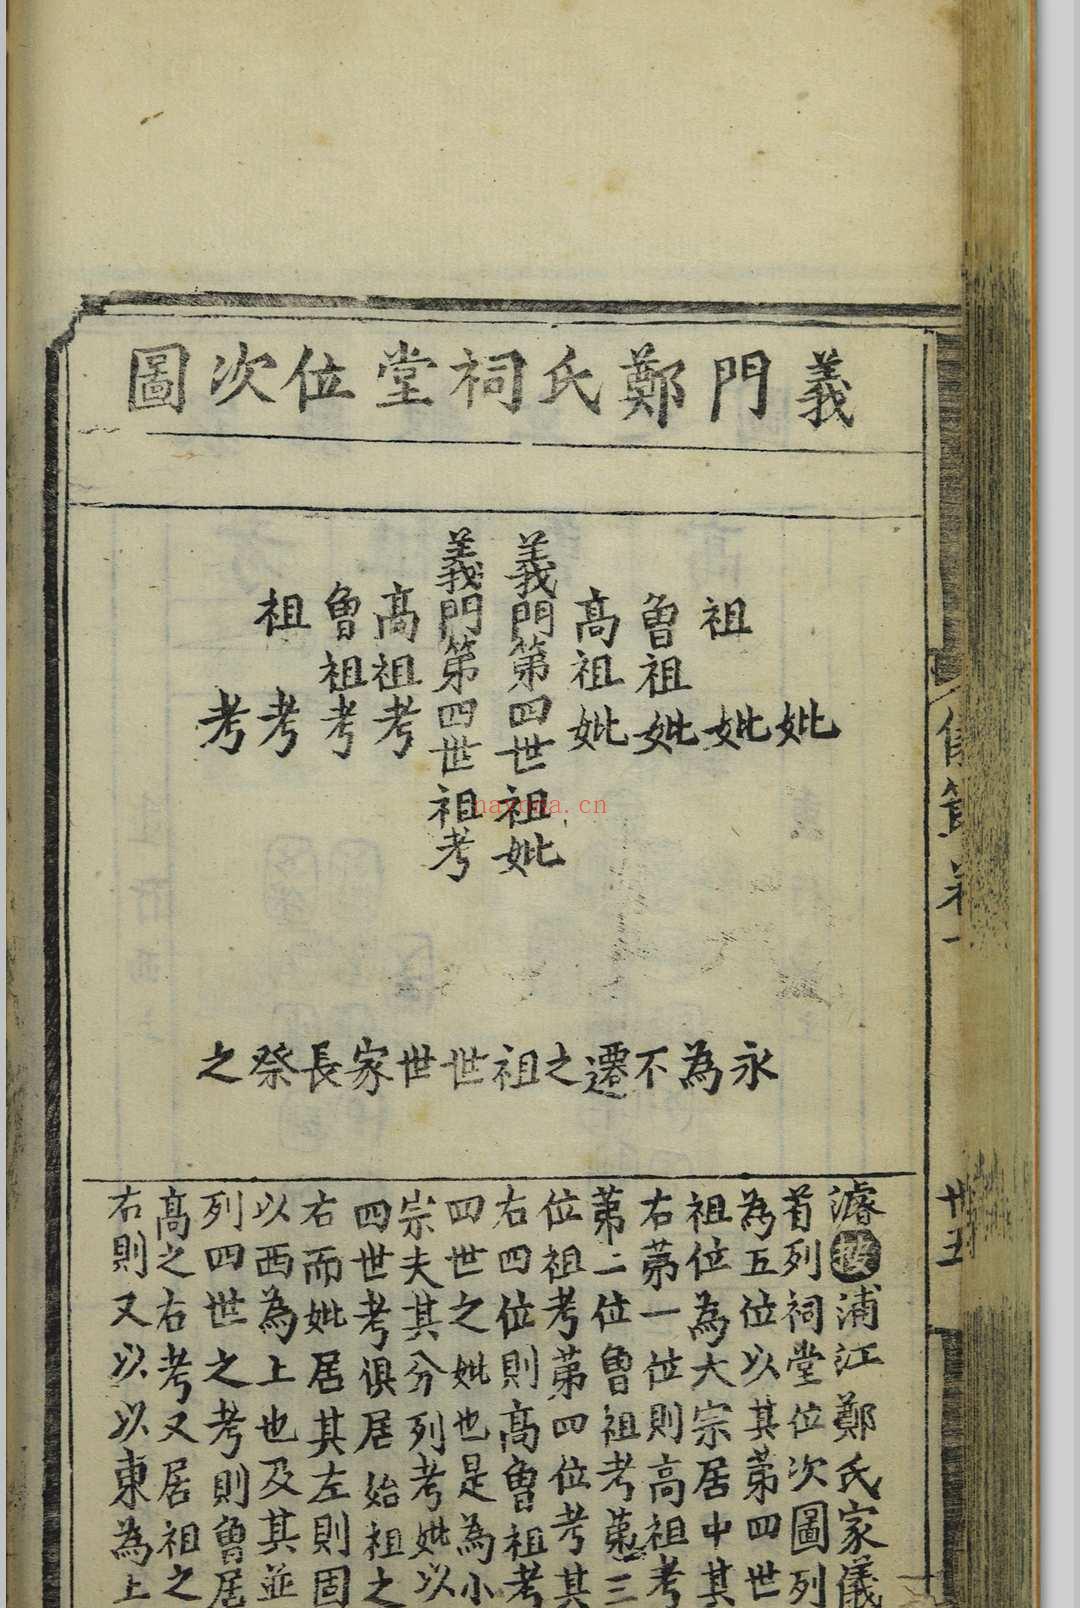 義門鄭氏祠堂位次圖
妣
祖妣
魯祖妣
高祖妣
義門第四世祖妣
義門第四世祖考
高祖考
魯祖考
祖考
考
永為不遷之祖世世家長祭之
濬按浦江鄭氏家儀
首列祠堂位次圖列
為五位以其苐四世
祖位為大宗居中其
右苐一位則高祖考
苐二位魯祖考苐三
位祖考苐四位考其
右四位則高魯祖考
四世之妣也是為小
宗夫其分列考妣以
四世考俱居始祖之
右而妣居其左則固
以西為上也及其並
列四世之考則魯居
高之右考又居祖之
右則又以以東為上
卅五
nayona.cn